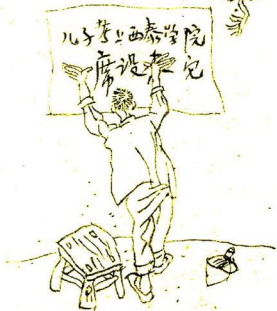 儿子考上西泰学院
席设宅